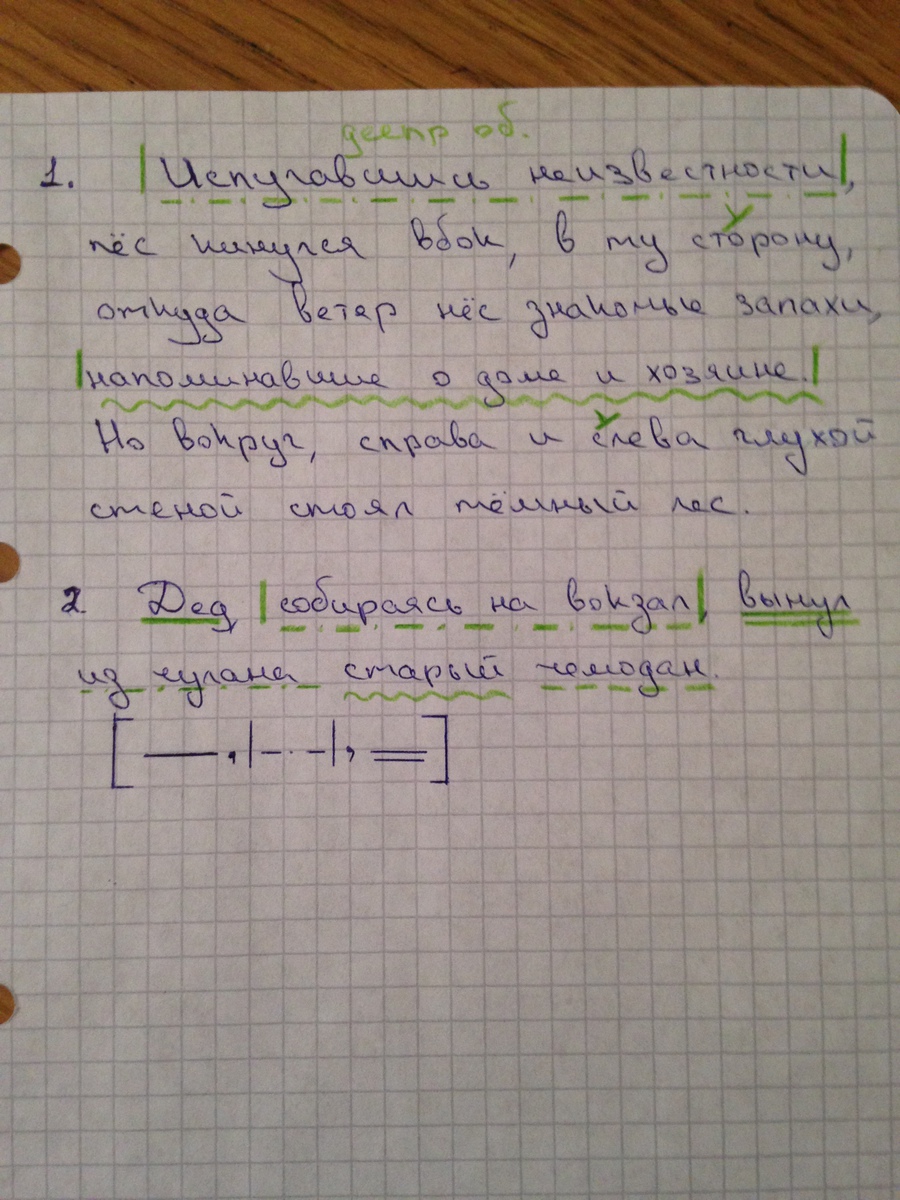 деепр об.
1. Испугавшись неизвестности,
пёс кинулся вбок, в ту сторону,
откуда ветер нёс знакомые запахи,
напоминавшие о доме и хозяине.
Но вокруг, справа и слева глухой
стеной стоял тёмный лес.
2. Дед, собираясь на вокзал, вынул
из чулана старый чемодан.